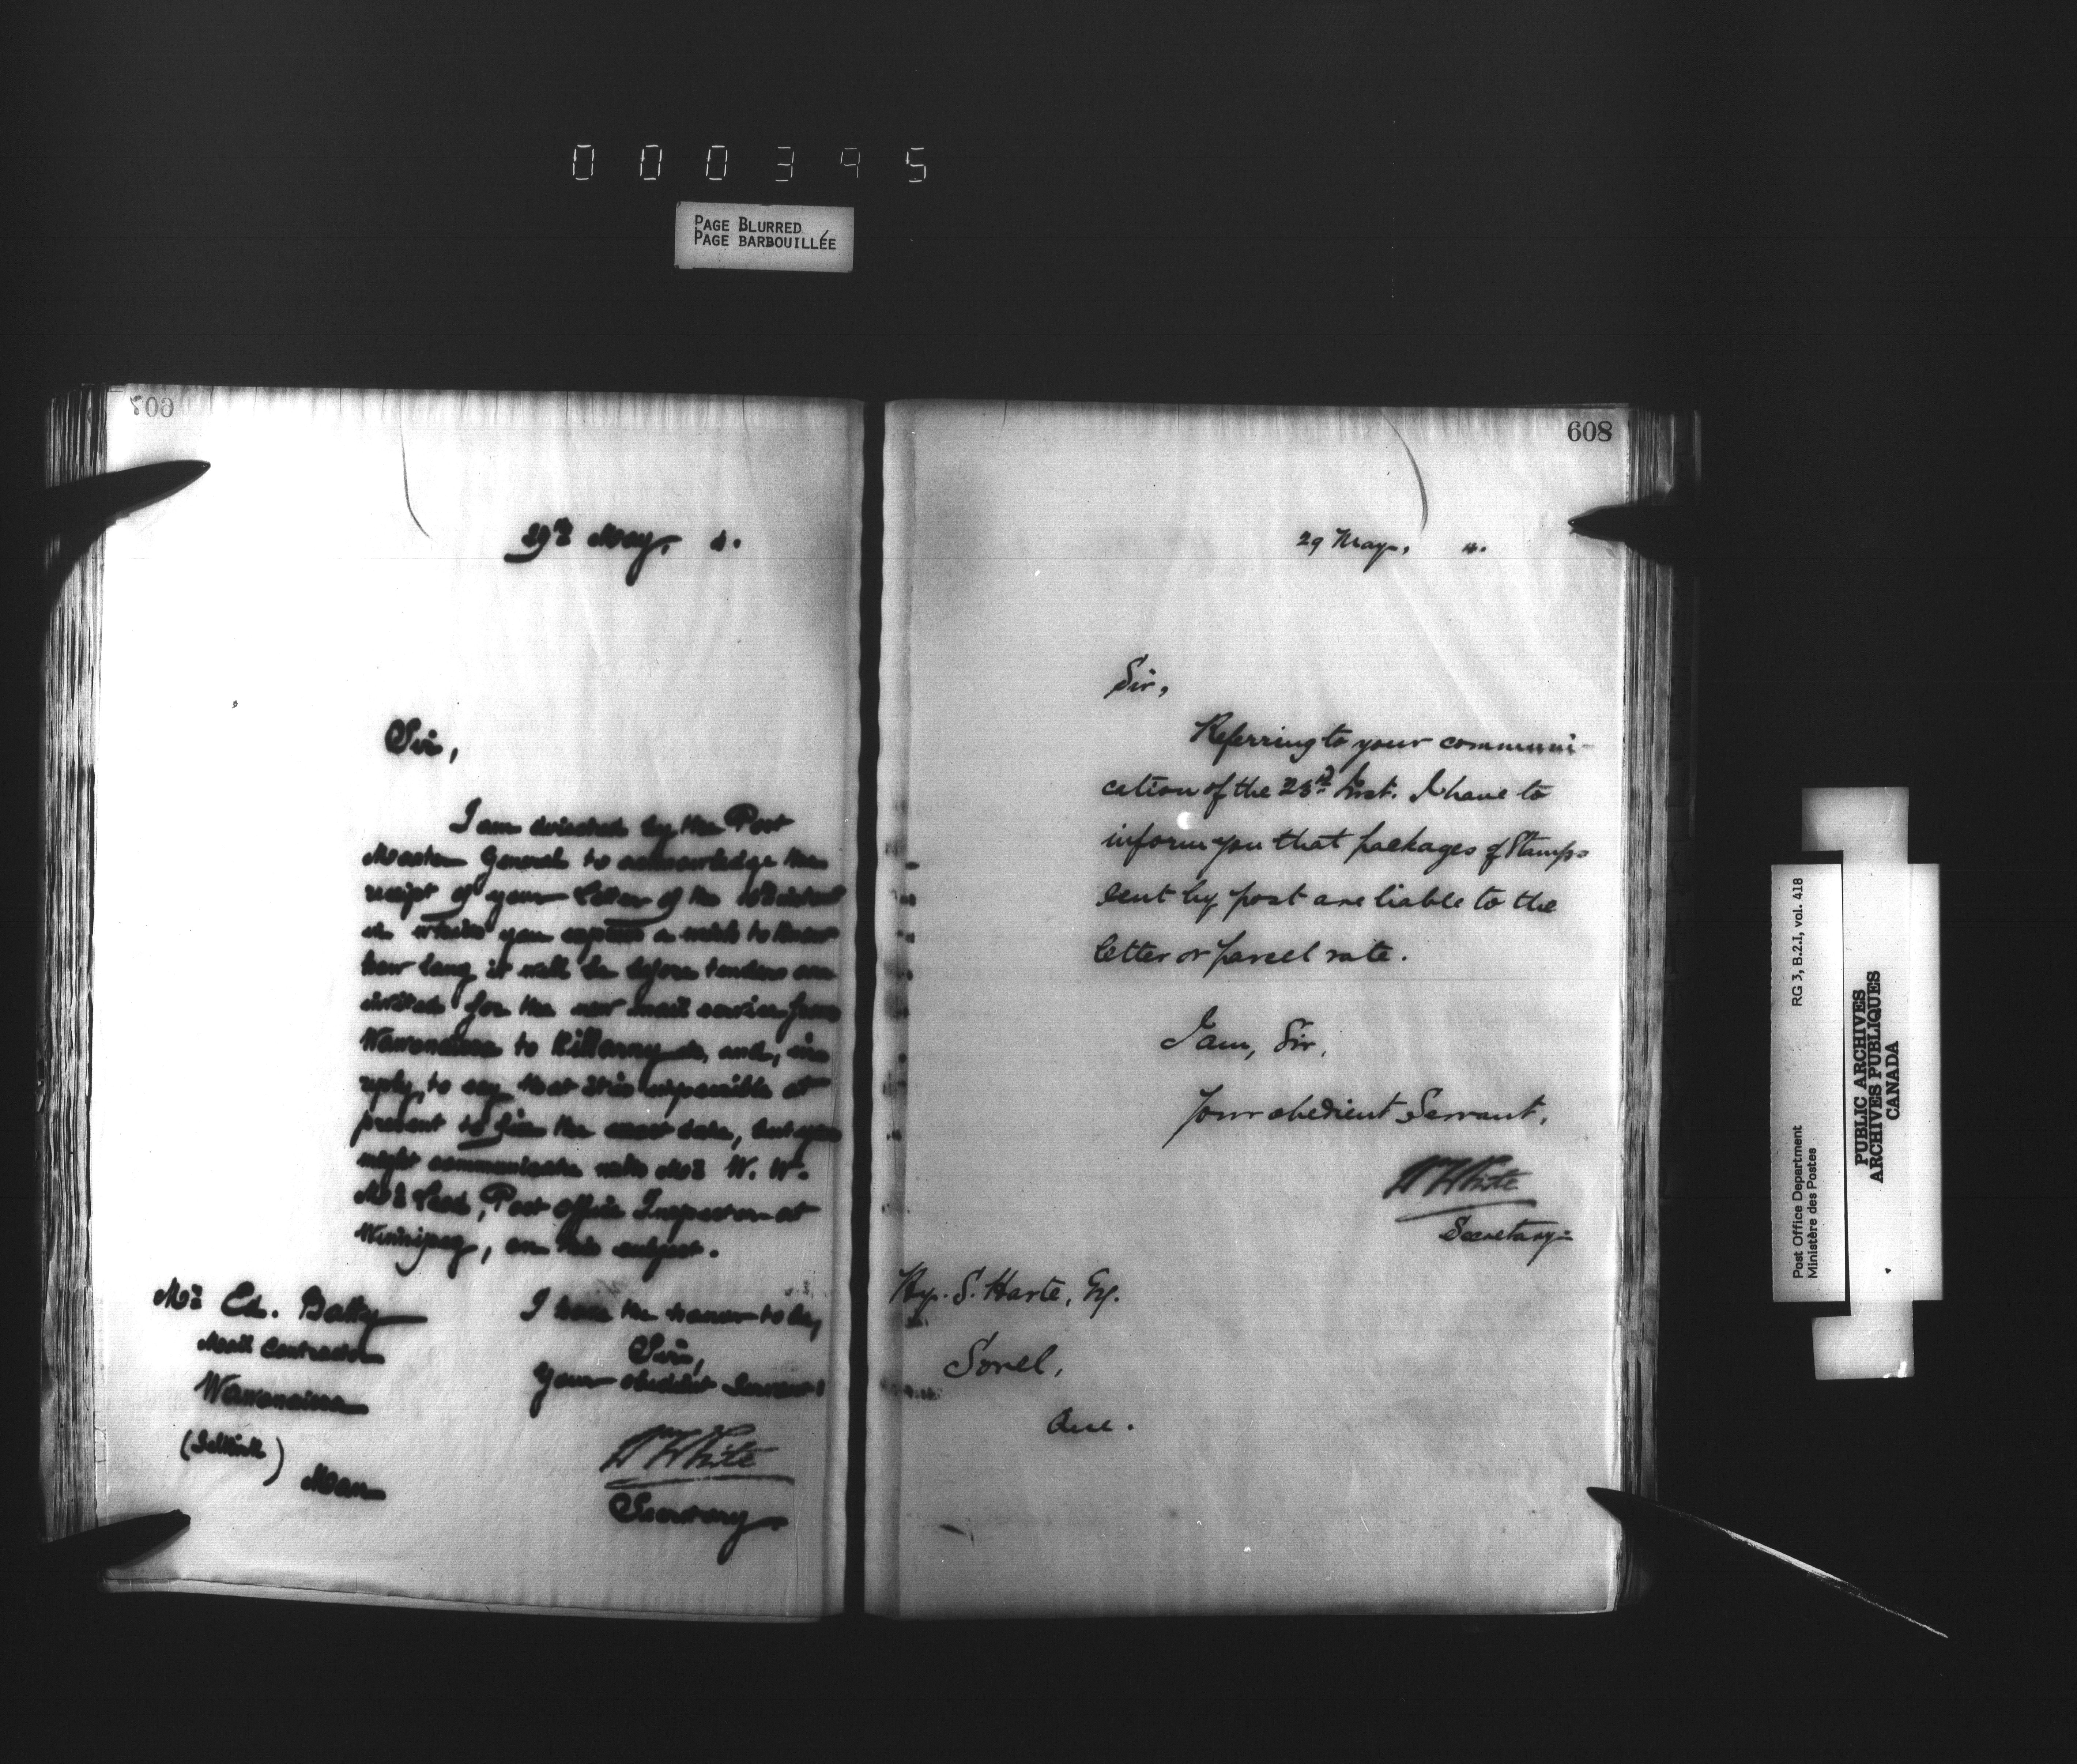 000395
PAGE BLURRED
PAGE BARBOUILLÉE
607
29th May, 4.
Sir,
I am directed by the Post
Master General to acknowledge the
receipt of your letter of the
in which you express a wish to know
how long it will be before tenders are
invited for the new mail service from
Wawanesa to Killarney &c, and, in
reply, to say that it is impossible at
present to give the exact date, but you
might communicate with Mr. W. W.
McLeod, Post Office Inspector at
Winnipeg, on this subject.
I have the honor to be,
Sir,
Your obedient Servant,
Wm White
Secretary.
Mr. Ed. Batty
Mail Contractor
Wawanesa
(Selkirk)
Man
608
29 May, 4.
Sir,
Referring to your communi-
cation of the 23rd Inst. I have to
inform you that packages of Stamps
sent by post are liable to the
letter or parcel rate.
I am, Sir,
Your obedient Servant,
W White
Secretary.
Hy. S. Harte, Esq.
Sorel,
Que.
RG 3, B.2.I, vol. 418
Post Office Department
Ministère des Postes
PUBLIC ARCHIVES
ARCHIVES PUBLIQUES
CANADA